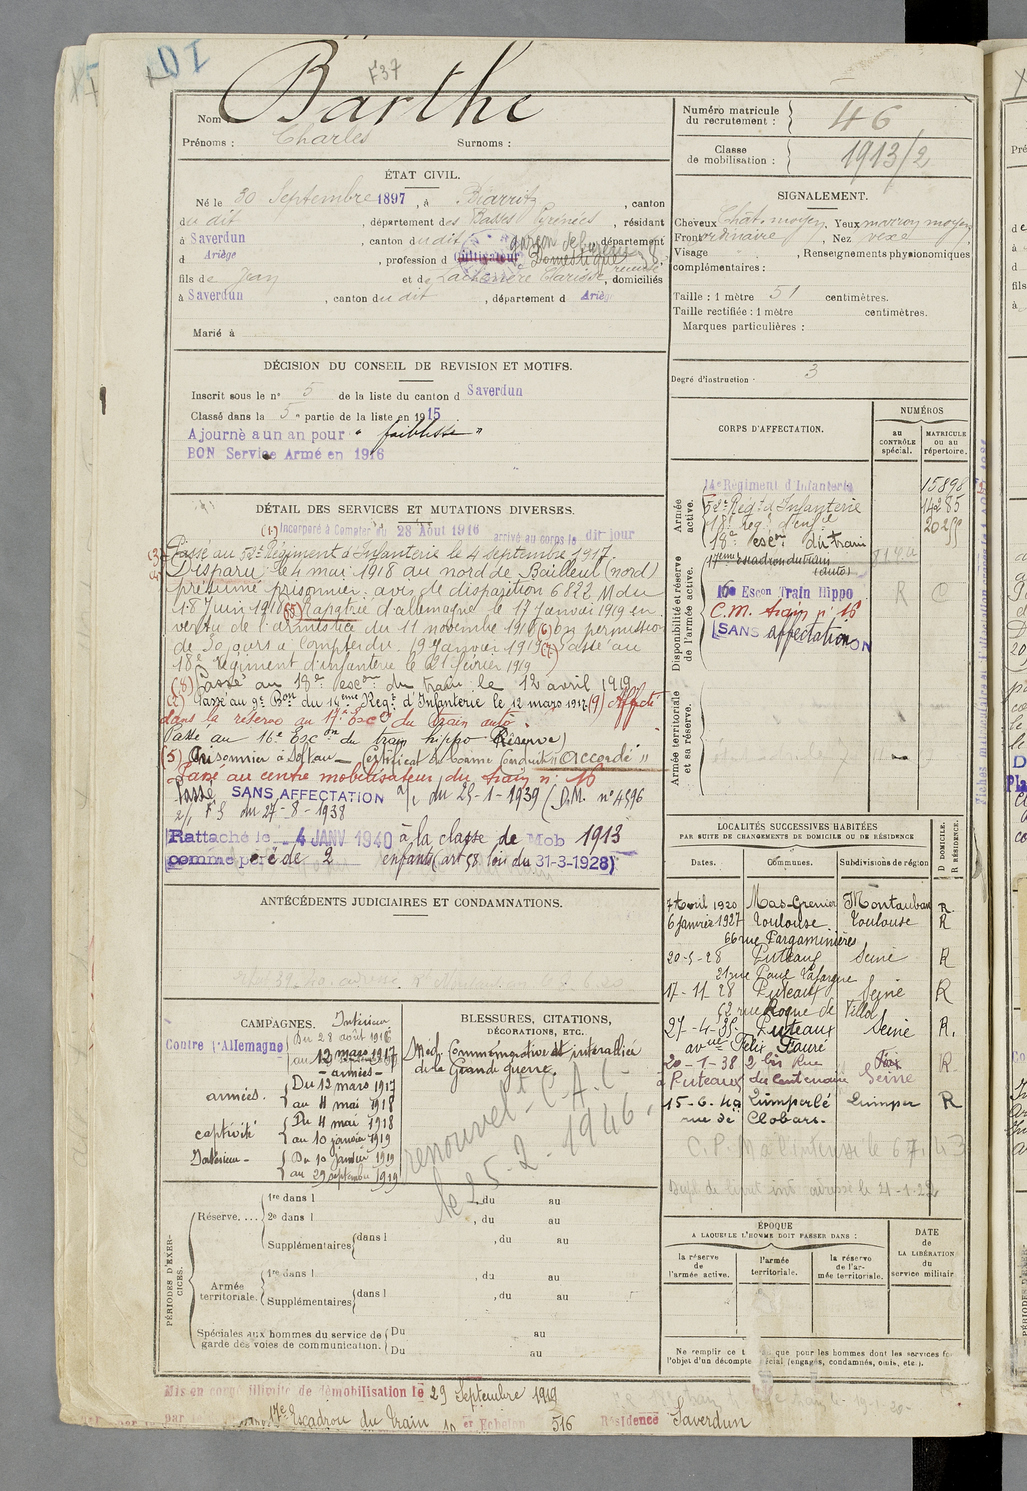 F37
Nom : Barthe
Prénoms : Charles Surnoms :
Numéro matricule du recrutement : 46
Classe de mobilisation : 1913/2
ÉTAT CIVIL.
Né le 30 Septembre 1897, à Biarritz, canton
du dit, département des Basses Pyrénées, résidant
à Saverdun, canton du dit, département
d Ariège, profession d Cultivateur Domestique garçon de bureau
fils de Jean et de Clarisse, domiciliés
à Saverdun, canton du dit, département d Ariège
Marié à
SIGNALEMENT.
Cheveux Chat. moyen, Yeux marron moyen
Front ordinaire, Nez vexe
Visage , Renseignements physionomiques
complémentaires :
Taille : 1 mètre 51 centimètres.
Taille rectifiée : 1 mètre centimètres.
Marques particulières :
Degré d'instruction : 3
DÉCISION DU CONSEIL DE REVISION ET MOTIFS.
Inscrit sous le n° 5 de la liste du canton d Saverdun
Classé dans la 5e partie de la liste en 1915
Ajourné a un an pour " faiblesse "
BON Service Armé en 1916
CORPS D'AFFECTATION.
NUMÉROS
au CONTRÔLE spécial.
MATRICULE ou au répertoire.
Armée active.
14e Régiment d'Infanterie 15898
Régt d'Infanterie 14285
18e Reg. d'Inf.ie
18e escon du train
Disponibilité et réserve de l'armée active.
17eme Escadron du train (auto)
16e Escon Train Hippo R C
C.M. train n° 16
SANS affectation
Armée territoriale et sa réserve.
DÉTAIL DES SERVICES ET MUTATIONS DIVERSES.
(1) Incorporé à Compter du 28 Août 1916 arrivé au corps le dit jour
Passé au Régiment d'Infanterie le 4 septembre 1917.
Disparu le 4 mai 1918 au nord de Bailleul (nord)
présumé prisonnier avis de disparition 6822 M du
18 Juin 1918 (5) Rapatrié d'allemagne le 17 Janvier 1919 en
vertu de l'armistice du 11 novembre 1918 (6) En permission
de 30 jours à compter du 19 Janvier 1919 (7) Passé au
18e Régiment d'infanterie le 21 février 1919
(8) Passé au 18e escon du train le 12 avril 1919
(2) Passé au 9e Bon du 14eme Regt d'Infanterie le 12 mars 1917 (9) Affecté
dans la réserve au 17e Esc. du Train auto.
Passé au 16e Escon du train hippo (Réserve)
(5) Prisonnier à Soltau — Certificat de bonne Conduite "Accordé"
Passé au centre mobilisateur du train n° 16
Passé SANS AFFECTATION a/c du 25-1-1939 (D.M. n° 4596
2/1 F S du 27-8-1938
Rattaché le 4 JANV 1940 à la classe de Mob 1913
comme père de 2 enfants (art 58 loi du 31-3-1928)
ANTÉCÉDENTS JUDICIAIRES ET CONDAMNATIONS.
LOCALITÉS SUCCESSIVES HABITÉES
PAR SUITE DE CHANGEMENTS DE DOMICILE OU DE RÉSIDENCE
Dates. Communes. Subdivisions de région
D DOMICILE. R RÉSIDENCE.
7 Avril 1920 Mas-Grenier Montauban R.
6 janvier 1927 Toulouse Toulouse R
66 rue Pargaminières
20-5-28 Puteaux Seine R
21 rue Paul Lafargue
17-11-28 Puteaux Seine R
52 rue Roque de Fillol
27-4-35 Puteaux Seine R.
avenue Félix Fauré
20-1-38 2 bis Rue R
à Puteaux du Centenaire Seine
15-6-40 Quimperlé Quimper R
rue de Clohars.
CAMPAGNES.
Contre l'Allemagne
Intérieur
Du 28 août 1916
au 12 mars 1917
— armées —
armées. Du 12 mars 1917
au 4 mai 1918
captivité Du 4 mai 1918
au 10 janvier 1919
Intérieur — Du 10 janvier 1919
au 29 septembre 1919
BLESSURES, CITATIONS,
DÉCORATIONS, ETC.
Med. Commémorative et interalliée
de la Grande guerre.
renouvelt C.A.C
le 25-2-1946.
PÉRIODES D'EXERCICES.
Réserve....
1re dans l , du au
2e dans l , du au
Supplémentaires dans l , du au
Armée territoriale.
1re dans l , du au
Supplémentaires dans l , du au
Spéciales aux hommes du service de garde des voies de communication.
Du au
Du au
ÉPOQUE
A LAQUELLE L'HOMME DOIT PASSER DANS :
la réserve de l'armée active.
l'armée territoriale.
la réserve de l'armée territoriale.
DATE de LA LIBÉRATION du service militaire
Ne remplir ce que pour les hommes dont les services
l'objet d'un décompte spécial (engagés, condamnés, omis, etc.).
Mis en congé illimité de démobilisation le 29 Septembre 1919
17e Escadron du Train 1er Echelon 516 Résidence Saverdun